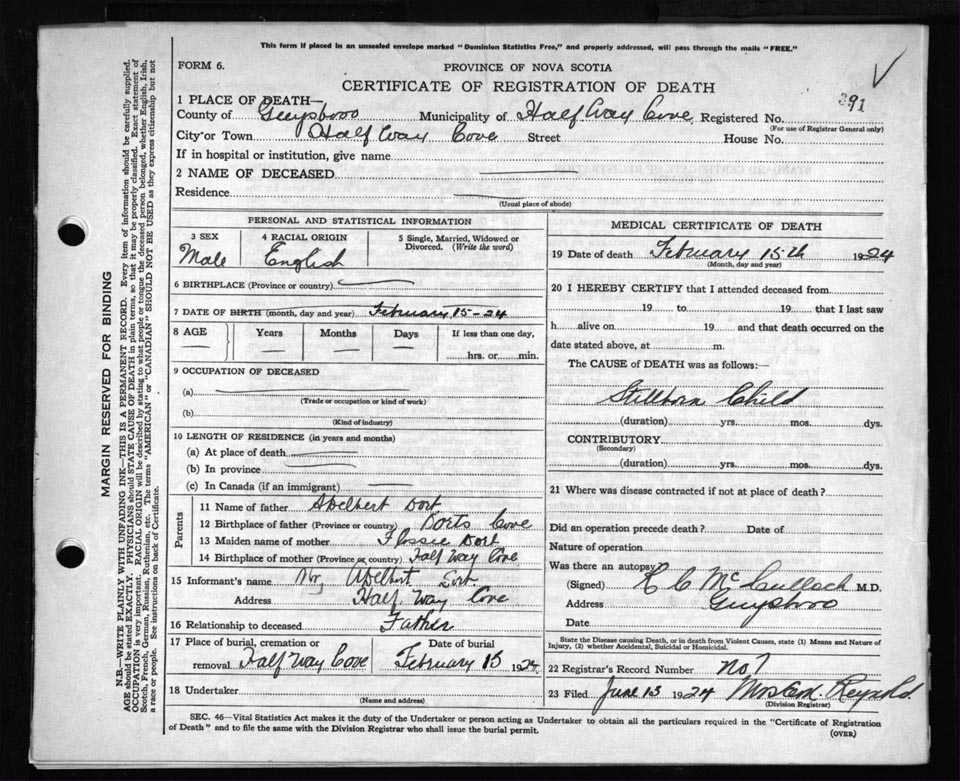 This form if placed in an unsealed envelope marked "Dominion Statistics Free," and properly addressed, will pass through the mails "FREE."
FORM 6.
PROVINCE OF NOVA SCOTIA
CERTIFICATE OF REGISTRATION OF DEATH
391
1 PLACE OF DEATH—
County of Guysboro Municipality of Half Way Cove Registered No.
(For use of Registrar General only)
City or Town Half Way Cove Street House No.
If in hospital or institution, give name
2 NAME OF DECEASED
Residence
(Usual place of abode)
PERSONAL AND STATISTICAL INFORMATION
3 SEX
Male
4 RACIAL ORIGIN
English
5 Single, Married, Widowed or Divorced. (Write the word)
6 BIRTHPLACE (Province or country)
7 DATE OF BIRTH (month, day and year) February 15-24
8 AGE
Years Months Days If less than one day,
hrs. or min.
9 OCCUPATION OF DECEASED
(a)
(Trade or occupation or kind of work)
(b)
(Kind of industry)
10 LENGTH OF RESIDENCE (in years and months)
(a) At place of death
(b) In province
(c) In Canada (if an immigrant)
Parents
11 Name of father Adelbert Dort
12 Birthplace of father (Province or country) Dorts Cove
13 Maiden name of mother Flossie Dort
14 Birthplace of mother (Province or country) Half Way Cove
15 Informant's name Mr Adelbert Dort
Address Half Way Cove
16 Relationship to deceased Father
17 Place of burial, cremation or removal Half Way Cove
Date of burial
February 15 1924
18 Undertaker
(Name and address)
MEDICAL CERTIFICATE OF DEATH
19 Date of death February 15th 1924
(Month, day and year)
20 I HEREBY CERTIFY that I attended deceased from
19 to 19 that I last saw
h alive on 19 and that death occurred on the
date stated above, at m.
The CAUSE of DEATH was as follows:—
Stillborn Child
(duration) yrs. mos. dys.
CONTRIBUTORY
(Secondary)
(duration) yrs. mos. dys.
21 Where was disease contracted if not at place of death?
Did an operation precede death? Date of
Nature of operation
Was there an autopsy?
(Signed) McCulloch M.D.
Address Guysboro
Date
State the Disease causing Death, or in death from Violent Causes, state (1) Means and Nature of
Injury, (2) whether Accidental, Suicidal or Homicidal.
22 Registrar's Record Number No 7
23 Filed June 13 1924 Reynold
(Division Registrar)
SEC. 46—Vital Statistics Act makes it the duty of the Undertaker or person acting as Undertaker to obtain all the particulars required in the "Certificate of Registration
of Death" and to file the same with the Division Registrar who shall issue the burial permit.
(OVER)
MARGIN RESERVED FOR BINDING
N.B.—WRITE PLAINLY WITH UNFADING INK—THIS IS A PERMANENT RECORD. Every item of information should be carefully supplied.
AGE should be stated EXACTLY. PHYSICIANS should STATE CAUSE OF DEATH in plain terms, so that it may be properly classified. Exact statement of
OCCUPATION is very important. RACIAL ORIGIN will be described by stating to what people or tongue the deceased person belonged, whether English, Irish,
Scotch, French, German, Russian, Ruthenian, etc. The terms "AMERICAN" or "CANADIAN" SHOULD NOT BE USED as they express citizenship but not
a race or people. See instructions on back of Certificate.